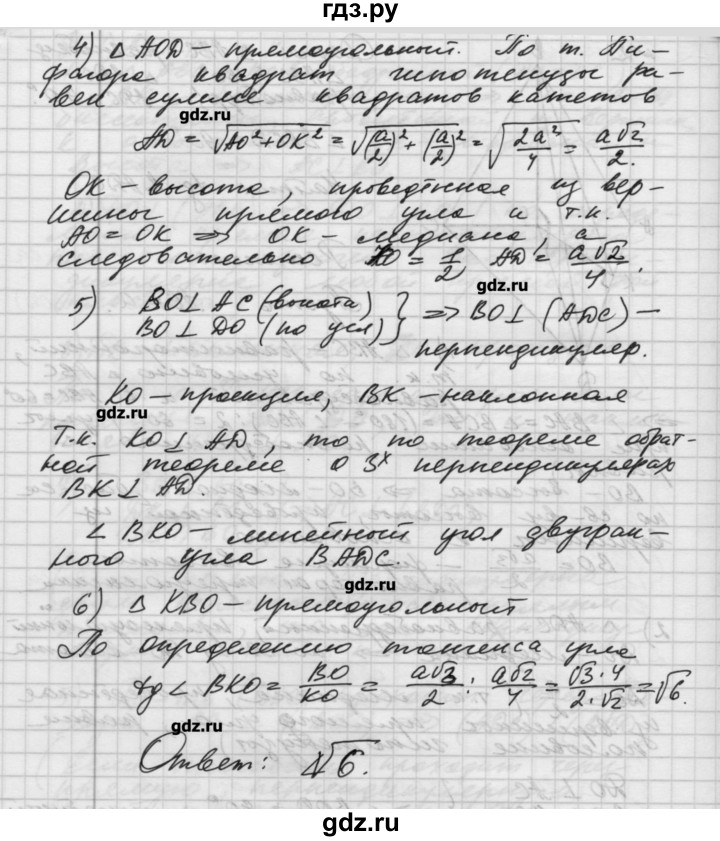 гдз.ру
4) Δ AOD – прямоугольный. По т. Пи-
фагора квадрат гипотенузы ра-
вен сумме квадратов катетов
gdz.ru
AD = √(AO² + OK²) = √((a/2)² + (a/2)²) = √(2a²/4) = a√2/2.
OK – высота, проведённая из вер-
шины прямого угла и т.к.
AO = OK ⇒ OK – медиана, а
следовательно KO = 1/2 AD = a√2/4.
gdz.ru
5) BO ⊥ AC (высота)
BO ⊥ DO (по усл) } ⇒ BO ⊥ (ADC) –
перпендикуляр.
KO – проекция, BK – наклонная
gdz.ru
Т.к. KO ⊥ AD, то по теореме обрат-
ной теореме о 3х перпендикулярах
BK ⊥ AD.
∠ BKO – линейный угол двугран-
ного угла BADC.
gdz.ru
6) Δ KBO – прямоугольный
По определению тангенса угла
tg ∠ BKO = BO/KO = a√3/2 : a√2/4 = √3·4/2·√2 = √6.
gdz.ru
Ответ: √6.
gdz.ru